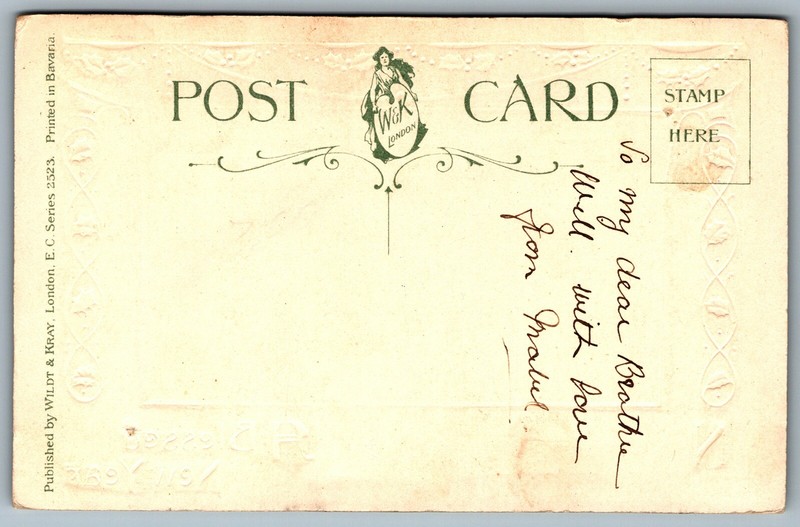 POST CARD
W&K
LONDON
STAMP
HERE
To my dear Brother
Will. with love
from Mabel.
Published by WILDT & KRAY, London, E.C. Series 2523. Printed in Bavaria.